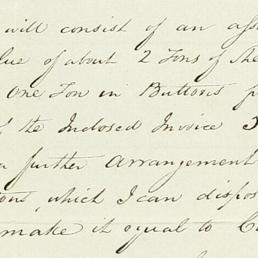 will consist of an ass
lue of about 2 Tons of the
One Ton in Buttons p
f the Inclosed Invoice
a further Arrangement
ons, which I can dispos
make it equal to C